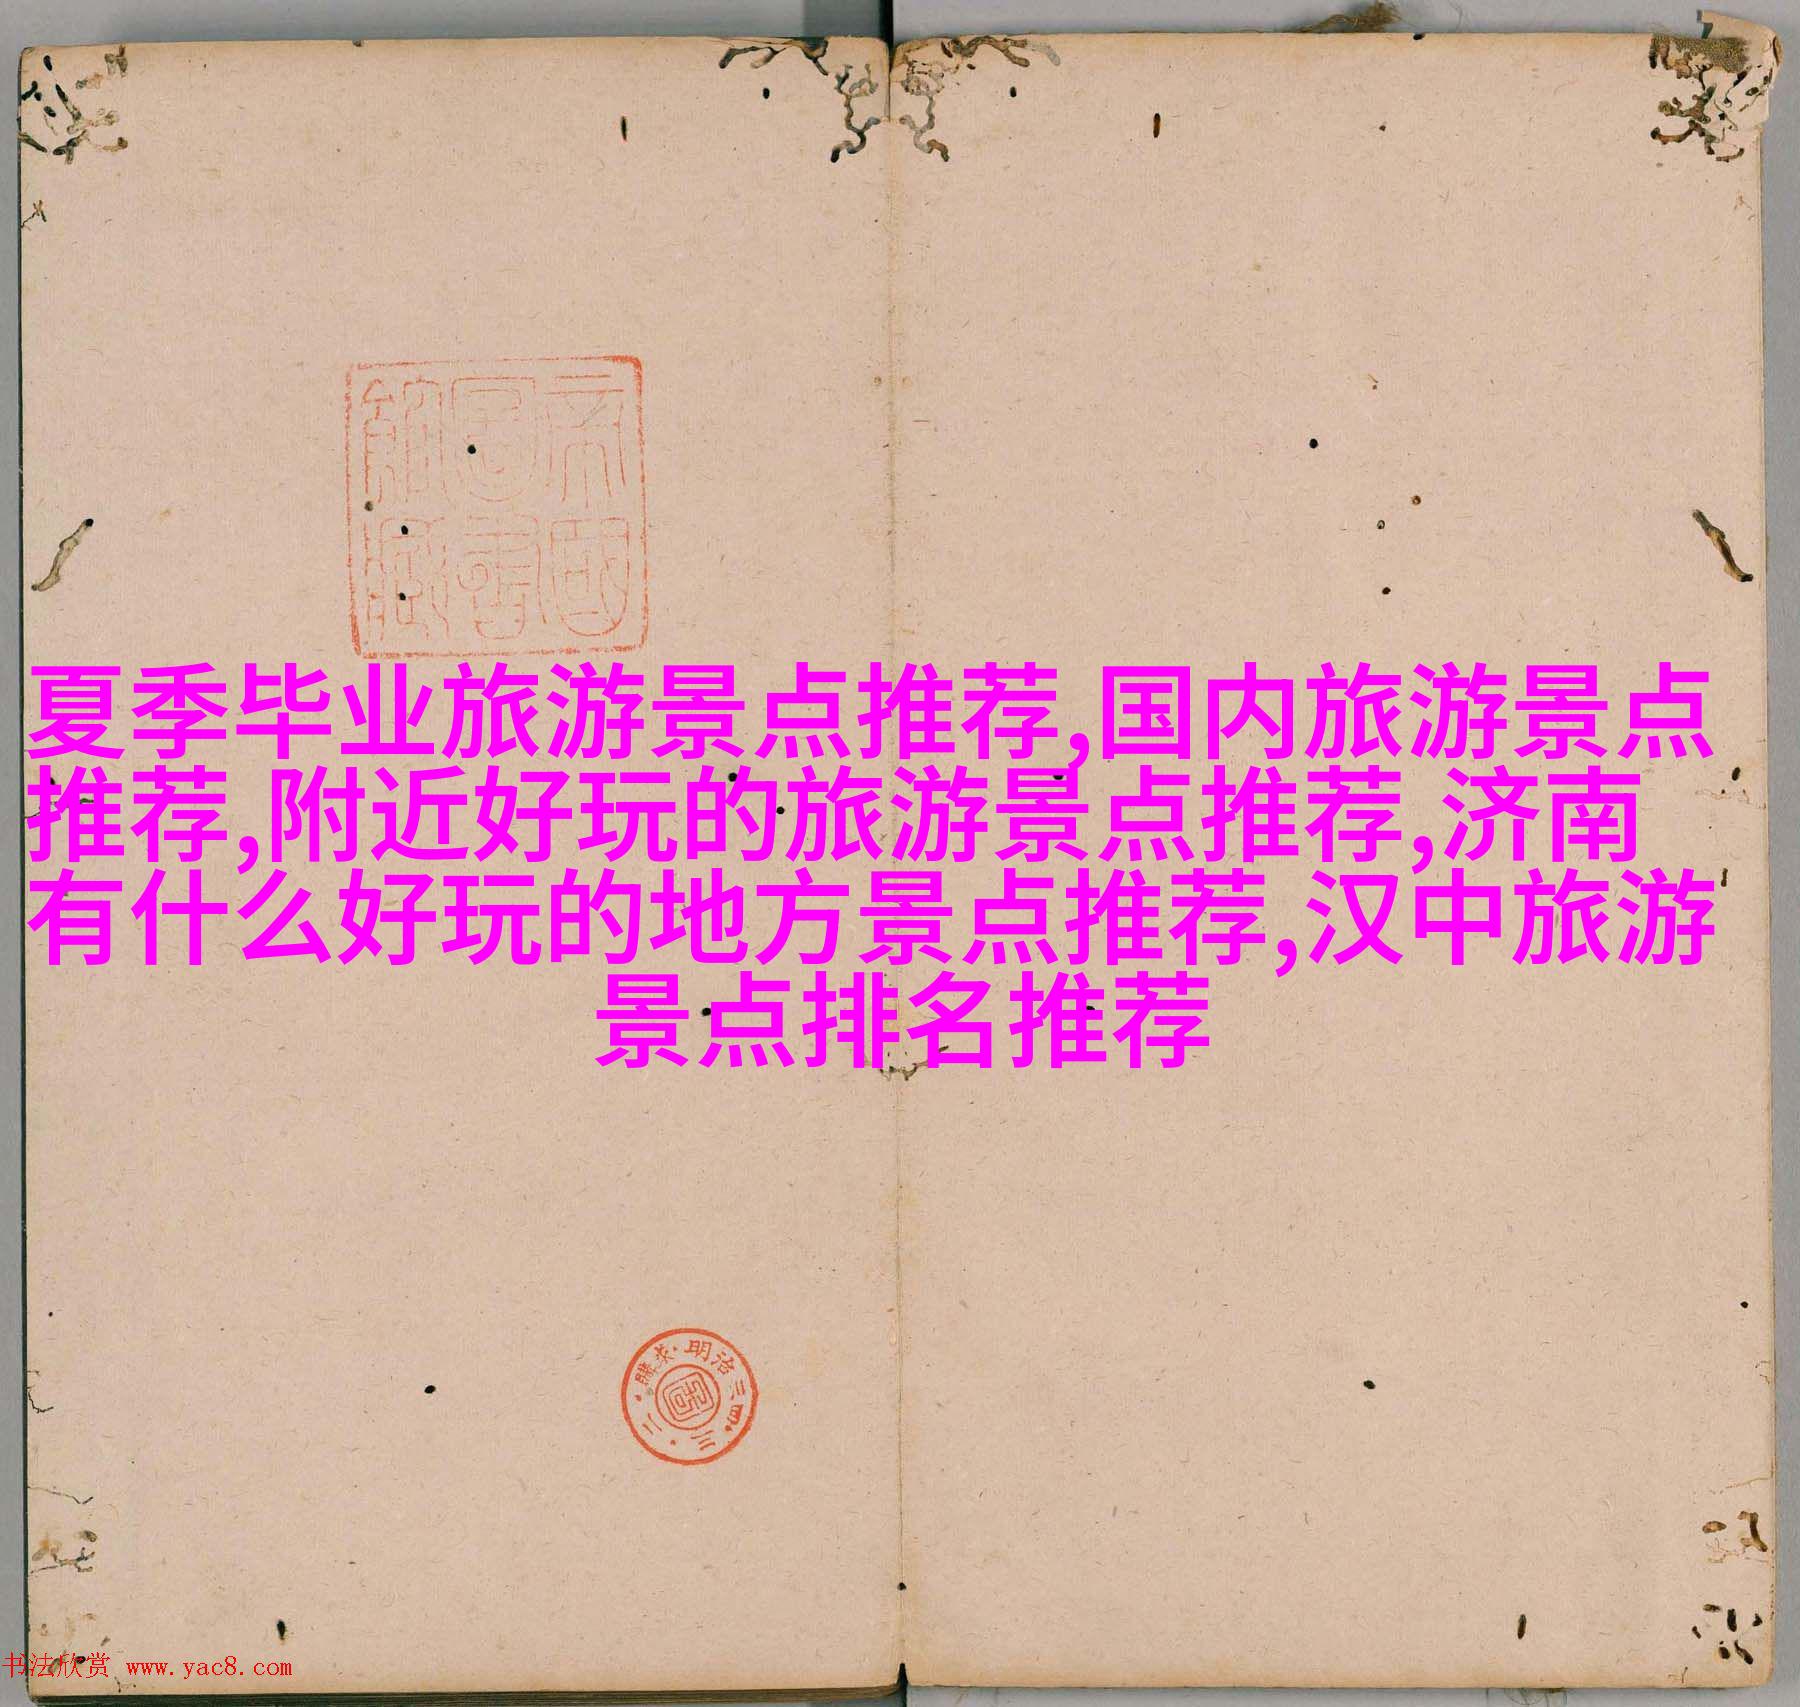 帝国
图书
馆藏
夏季毕业旅游景点推荐,国内旅游景点
推荐,附近好玩的旅游景点推荐,济南
有什么好玩的地方景点推荐,汉中旅游
景点排名推荐
明治三四·三·二·購求·
书法欣赏 www.yac8.com